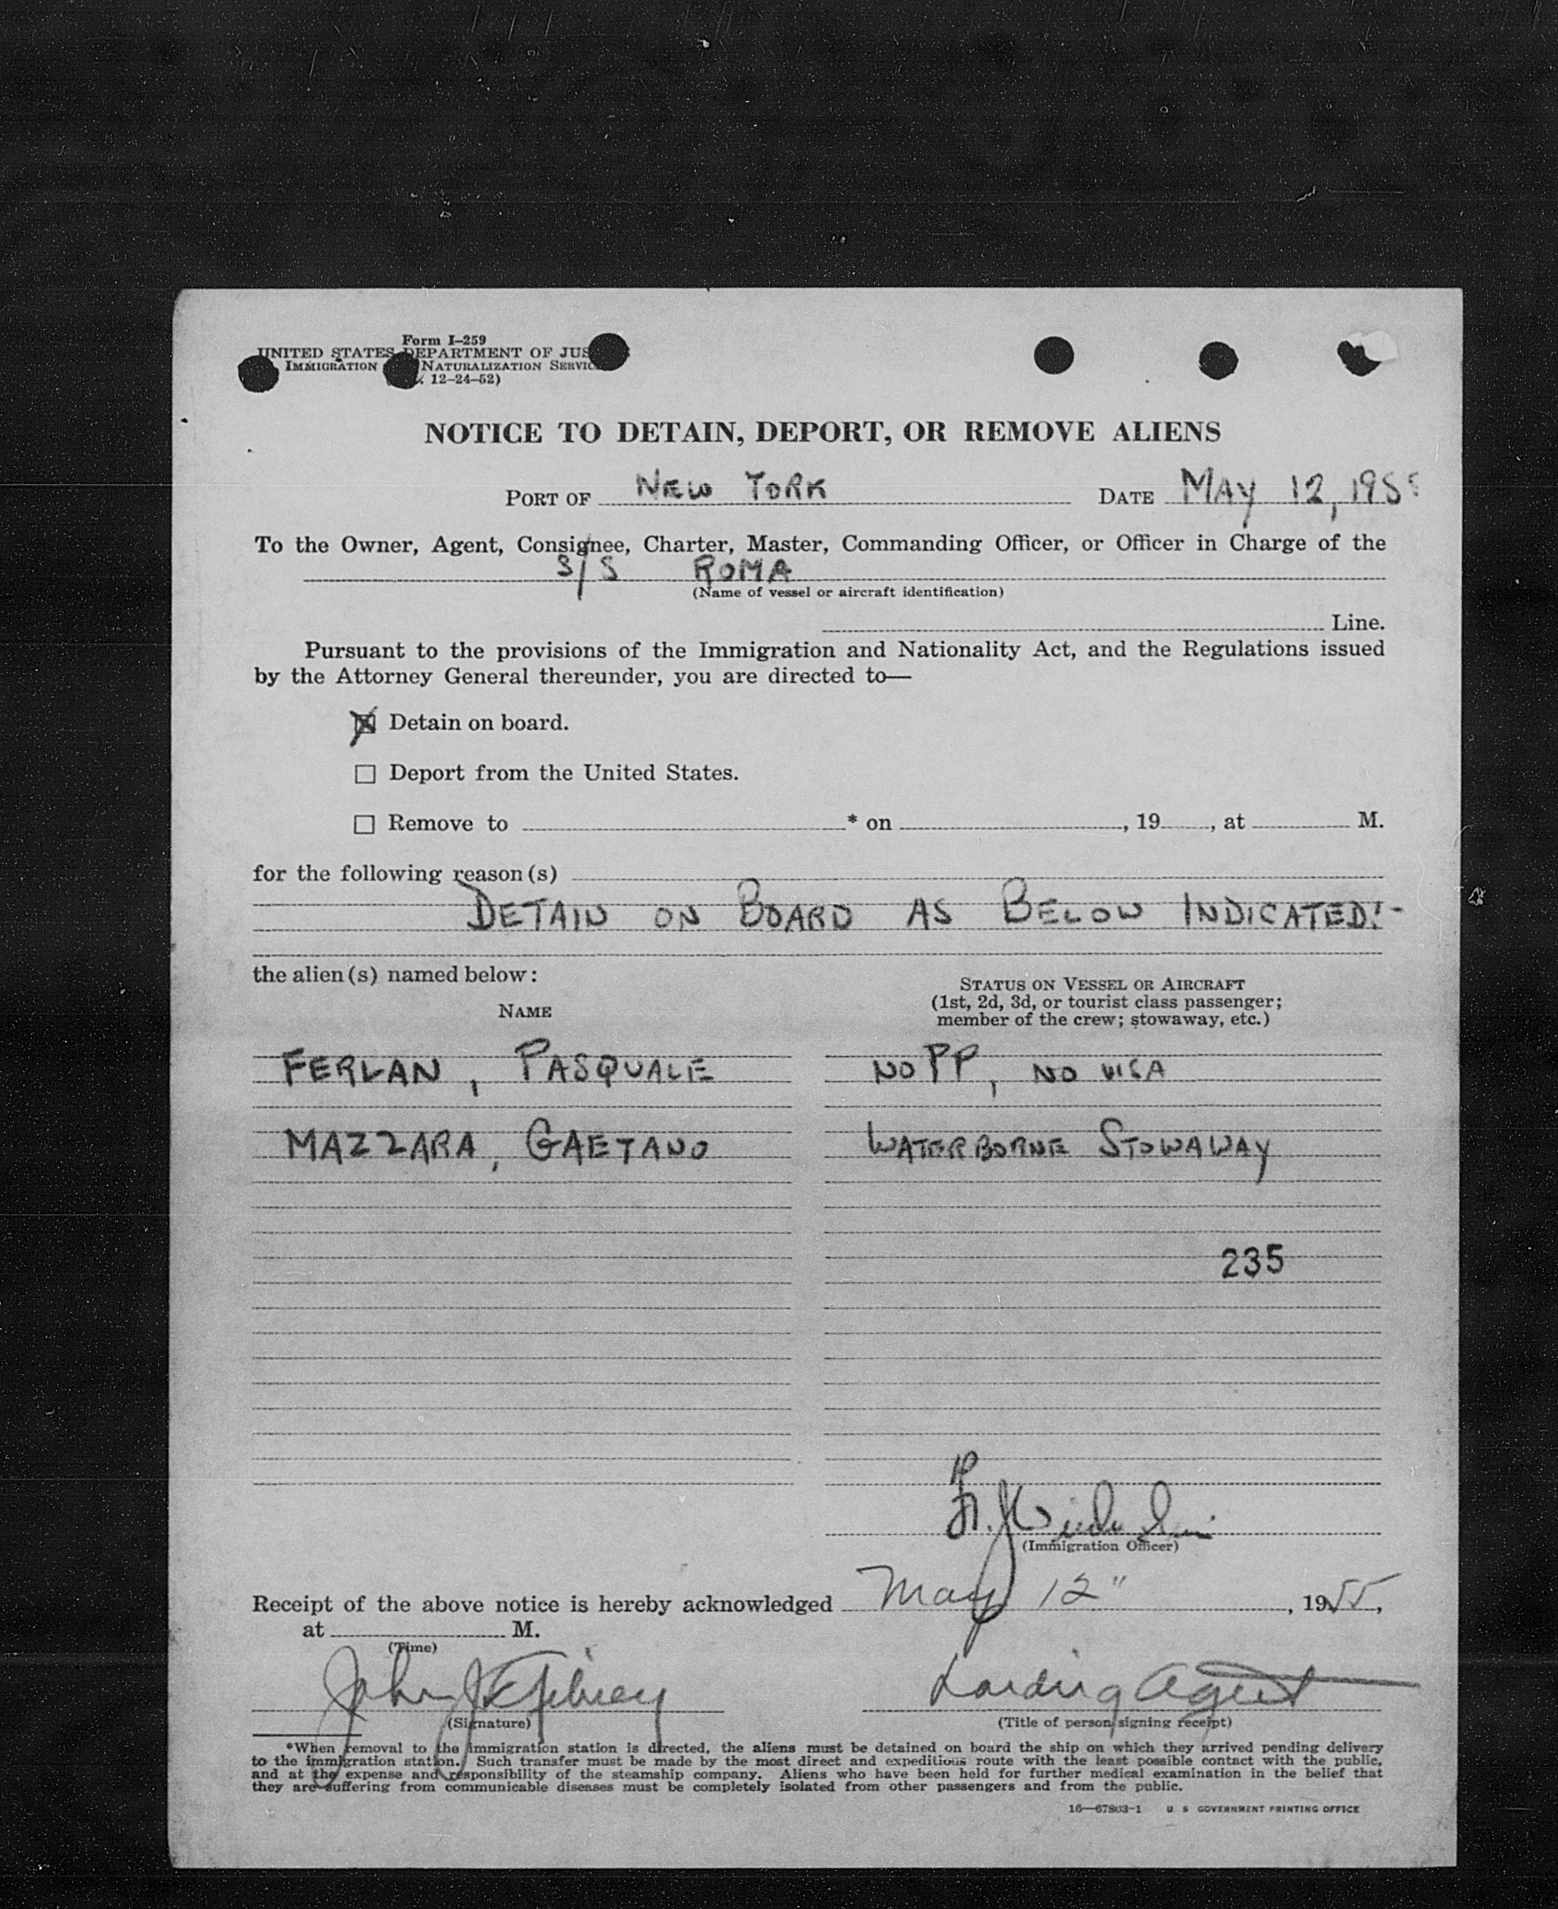 Form I-259
UNITED STATES DEPARTMENT OF JUS
IMMIGRATION NATURALIZATION SERVIC
12-24-52)
NOTICE TO DETAIN, DEPORT, OR REMOVE ALIENS
PORT OF NEW YORK DATE MAY 12, 1955
To the Owner, Agent, Consignee, Charter, Master, Commanding Officer, or Officer in Charge of the
S/S ROMA
(Name of vessel or aircraft identification)
Line.
Pursuant to the provisions of the Immigration and Nationality Act, and the Regulations issued
by the Attorney General thereunder, you are directed to—
Detain on board.
Deport from the United States.
Remove to * on , 19 , at M.
for the following reason(s)
DETAIN ON BOARD AS BELOW INDICATED:-
the alien(s) named below:
NAME
STATUS ON VESSEL OR AIRCRAFT
(1st, 2d, 3d, or tourist class passenger;
member of the crew; stowaway, etc.)
FERLAN, PASQUALE NO PP, NO VISA
MAZZARA, GAETANO WATERBORNE STOWAWAY
235
(Immigration Officer)
Receipt of the above notice is hereby acknowledged May 12" , 1955,
at M.
(Time)
John J. Landing Agent
(Signature) (Title of person signing receipt)
*When removal to the immigration station is directed, the aliens must be detained on board the ship on which they arrived pending delivery
to the immigration station. Such transfer must be made by the most direct and expeditious route with the least possible contact with the public,
and at the expense and responsibility of the steamship company. Aliens who have been held for further medical examination in the belief that
they are suffering from communicable diseases must be completely isolated from other passengers and from the public.
16—67803-1 U S GOVERNMENT PRINTING OFFICE